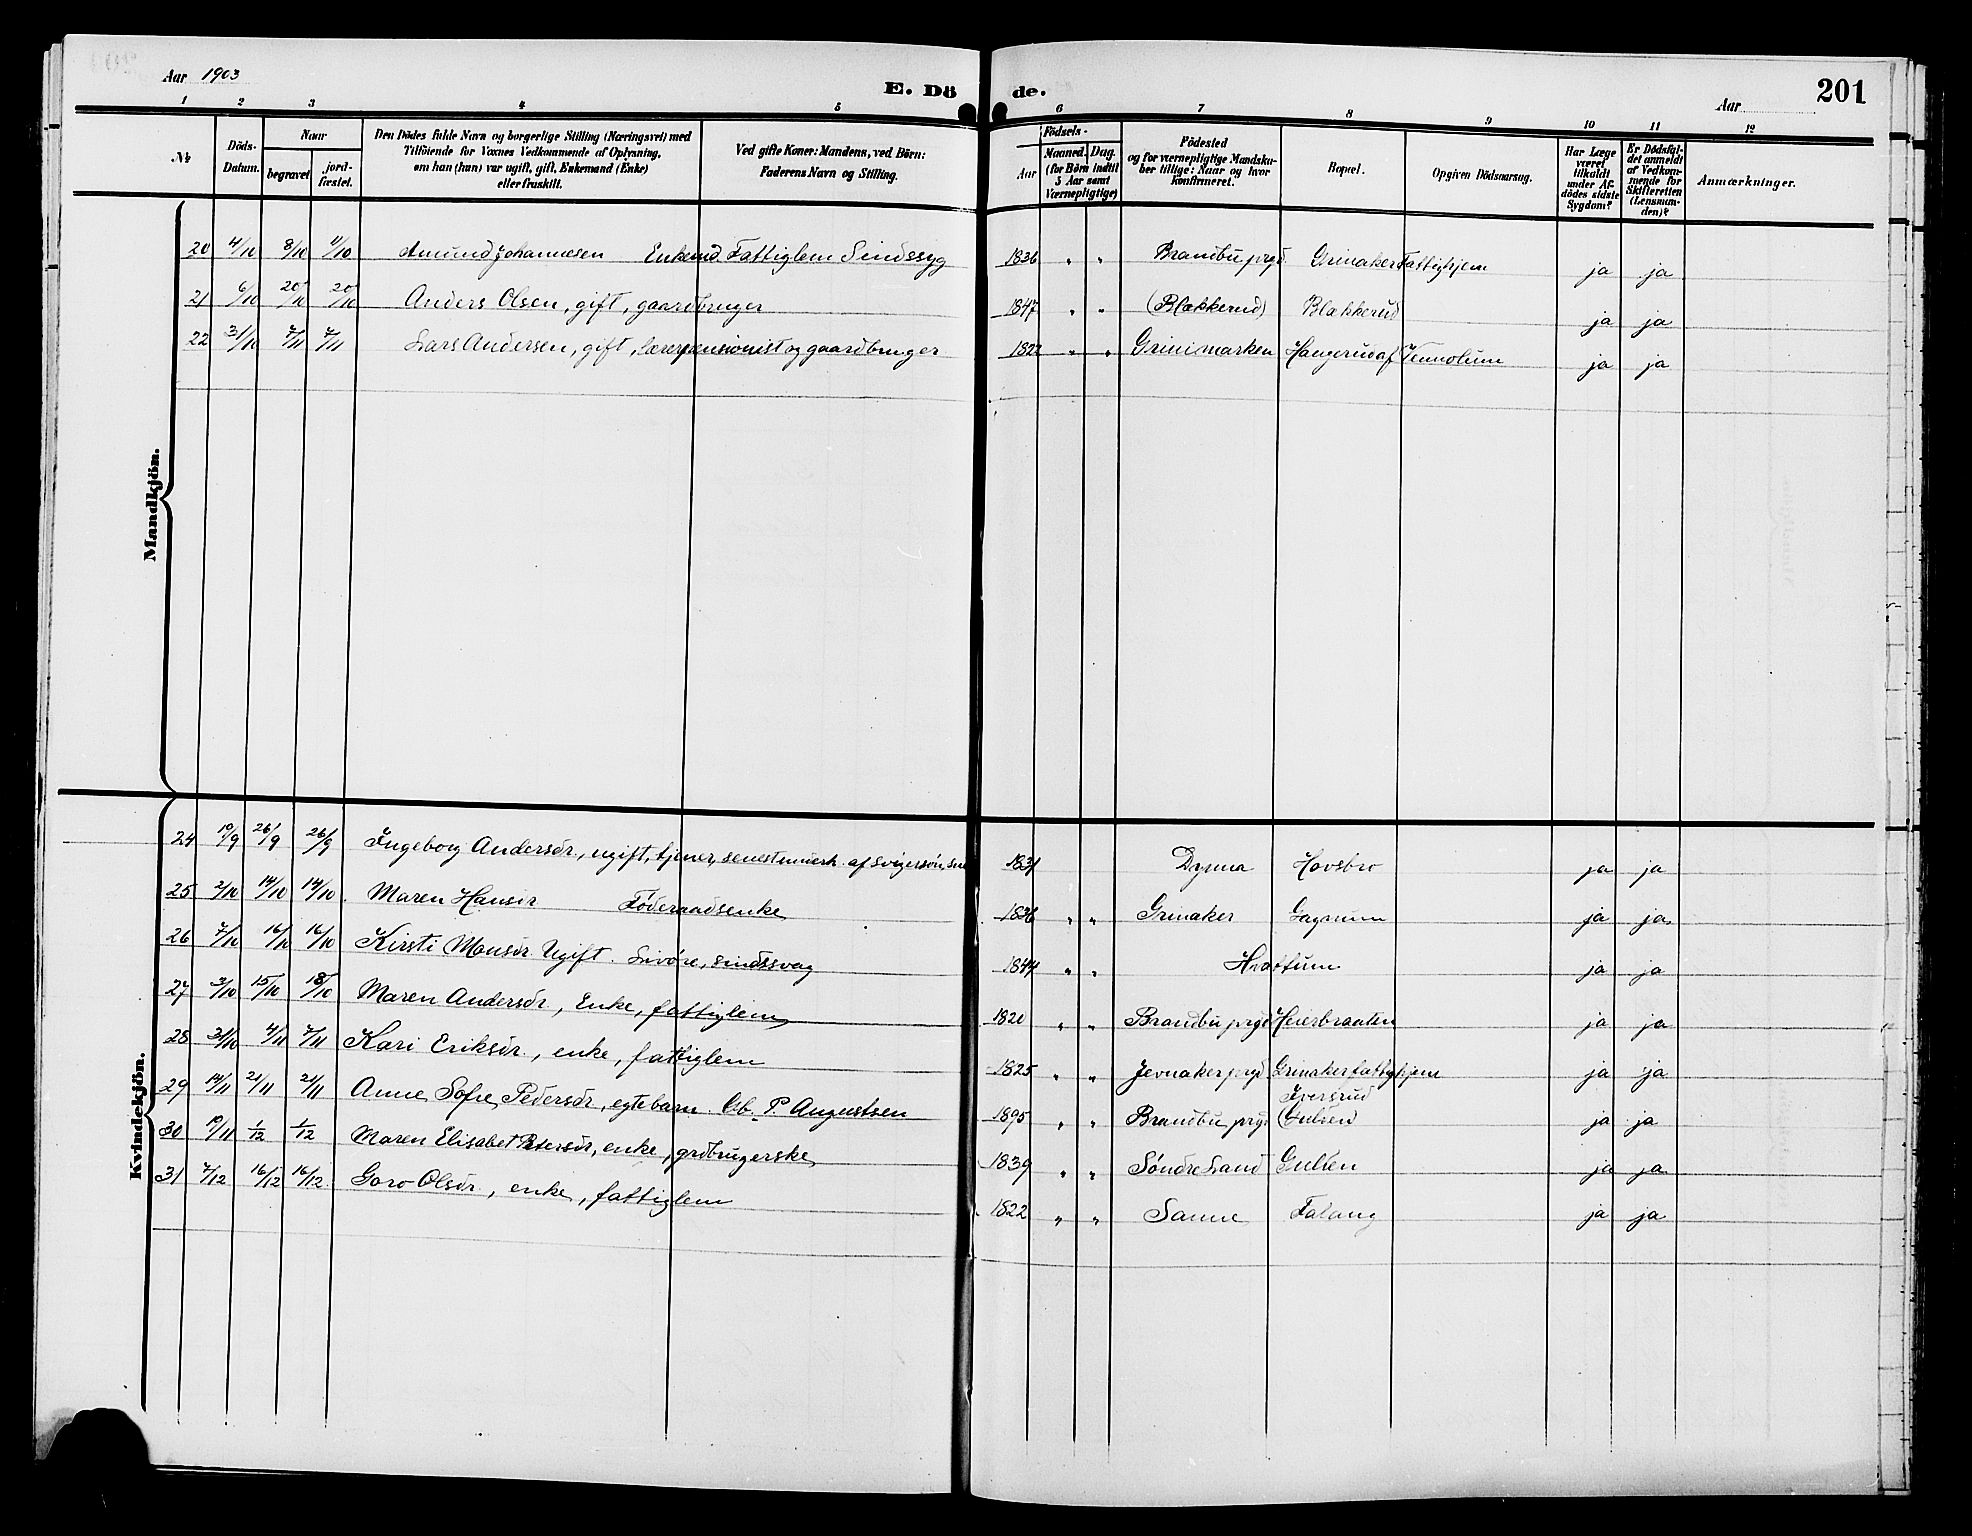 Aar 1903
E. Dö de.
Aar
201
1 2 3 4 5 6 7 8 9 10 11 12
No
Döds-Datum.
Naar
begravet
jord-fæstet.
Den Dödes fulde Navn og borgerlige Stilling (Næringsvei) med
Tilföiende for Voxnes Vedkommende af Oplysning,
om han (hun) var ugift, gift, Enkemand (Enke)
eller fraskilt.
Ved gifte Koner: Mandens, ved Börn:
Faderens Navn og Stilling.
Födsels-
Aar
Maaned. Dag.
(for Börn indtil
5 Aar samt
Værnepligtige)
Födested
og for værnepligtige Mandska-
ber tillige: Naar og hvor
konfirmeret.
Bopæl.
Opgiven Dödsaarsag.
Har Læge
været
tilkaldt
under Af-
dödes sidste
Sygdom?
Er Dödsfal-
det anmeldt
af Vedkom-
mende for
Skifteretten
(Lensman-
den)?
Anmærkninger.
Mandkjön.
20 4/10 8/10 11/10 Amund Johannesen Enkemd. Fattiglem Sindssyg 1836 " " Brandbu prgd. Grinaker Fattighjem ja ja
21 6/10 20/10 20/10 Anders Olsen, gift, gaardbruger 1847 " " (Blækkerud) Blækkerud ja ja
22 31/10 7/11 7/11 Lars Andersen, gift, lærerpensionist og gaardbruger 1822 " " Grinimarken Haugerud af Tennolum ja ja
Kvindekjön.
24 10/9 26/9 26/9 Ingeborg Andersdr., ugift, tjener, senest af svigersön 1831 Dynna Hovsbro ja ja
25 2/10 14/10 14/10 Maren Hansdr Föderaadsenke 1836 " " Grinaker Gagnum ja ja
26 7/10 16/10 16/10 Kirsti Monsdr. Ugift. Livöre, sindssvag 1844 " " Hvattum ja ja
27 3/10 15/10 18/10 Maren Andersdr., Enke, fattiglem 1820 " " Brandbu prgd Heiersbraaten ja ja
28 31/10 4/11 7/11 Kari Eriksdr., enke, fattiglem 1825 " " Jevnaker prgd Grinaker fattighjem ja ja
29 14/11 21/11 21/11 Anne Sofie Pedersdr., egtebarn. Gb. P. Augustsen 1895 " " Brandbu prgd Iversrud (Gulden) ja ja
30 19/11 1/12 1/12 Maren Elisabet Petersdr, enke, grdbrugerske 1839 " " Söndre Land Gulden ja ja
31 7/12 16/12 16/12 Goro Olsdr., enke, fattiglem 1822 " " Sanne Falang ja ja